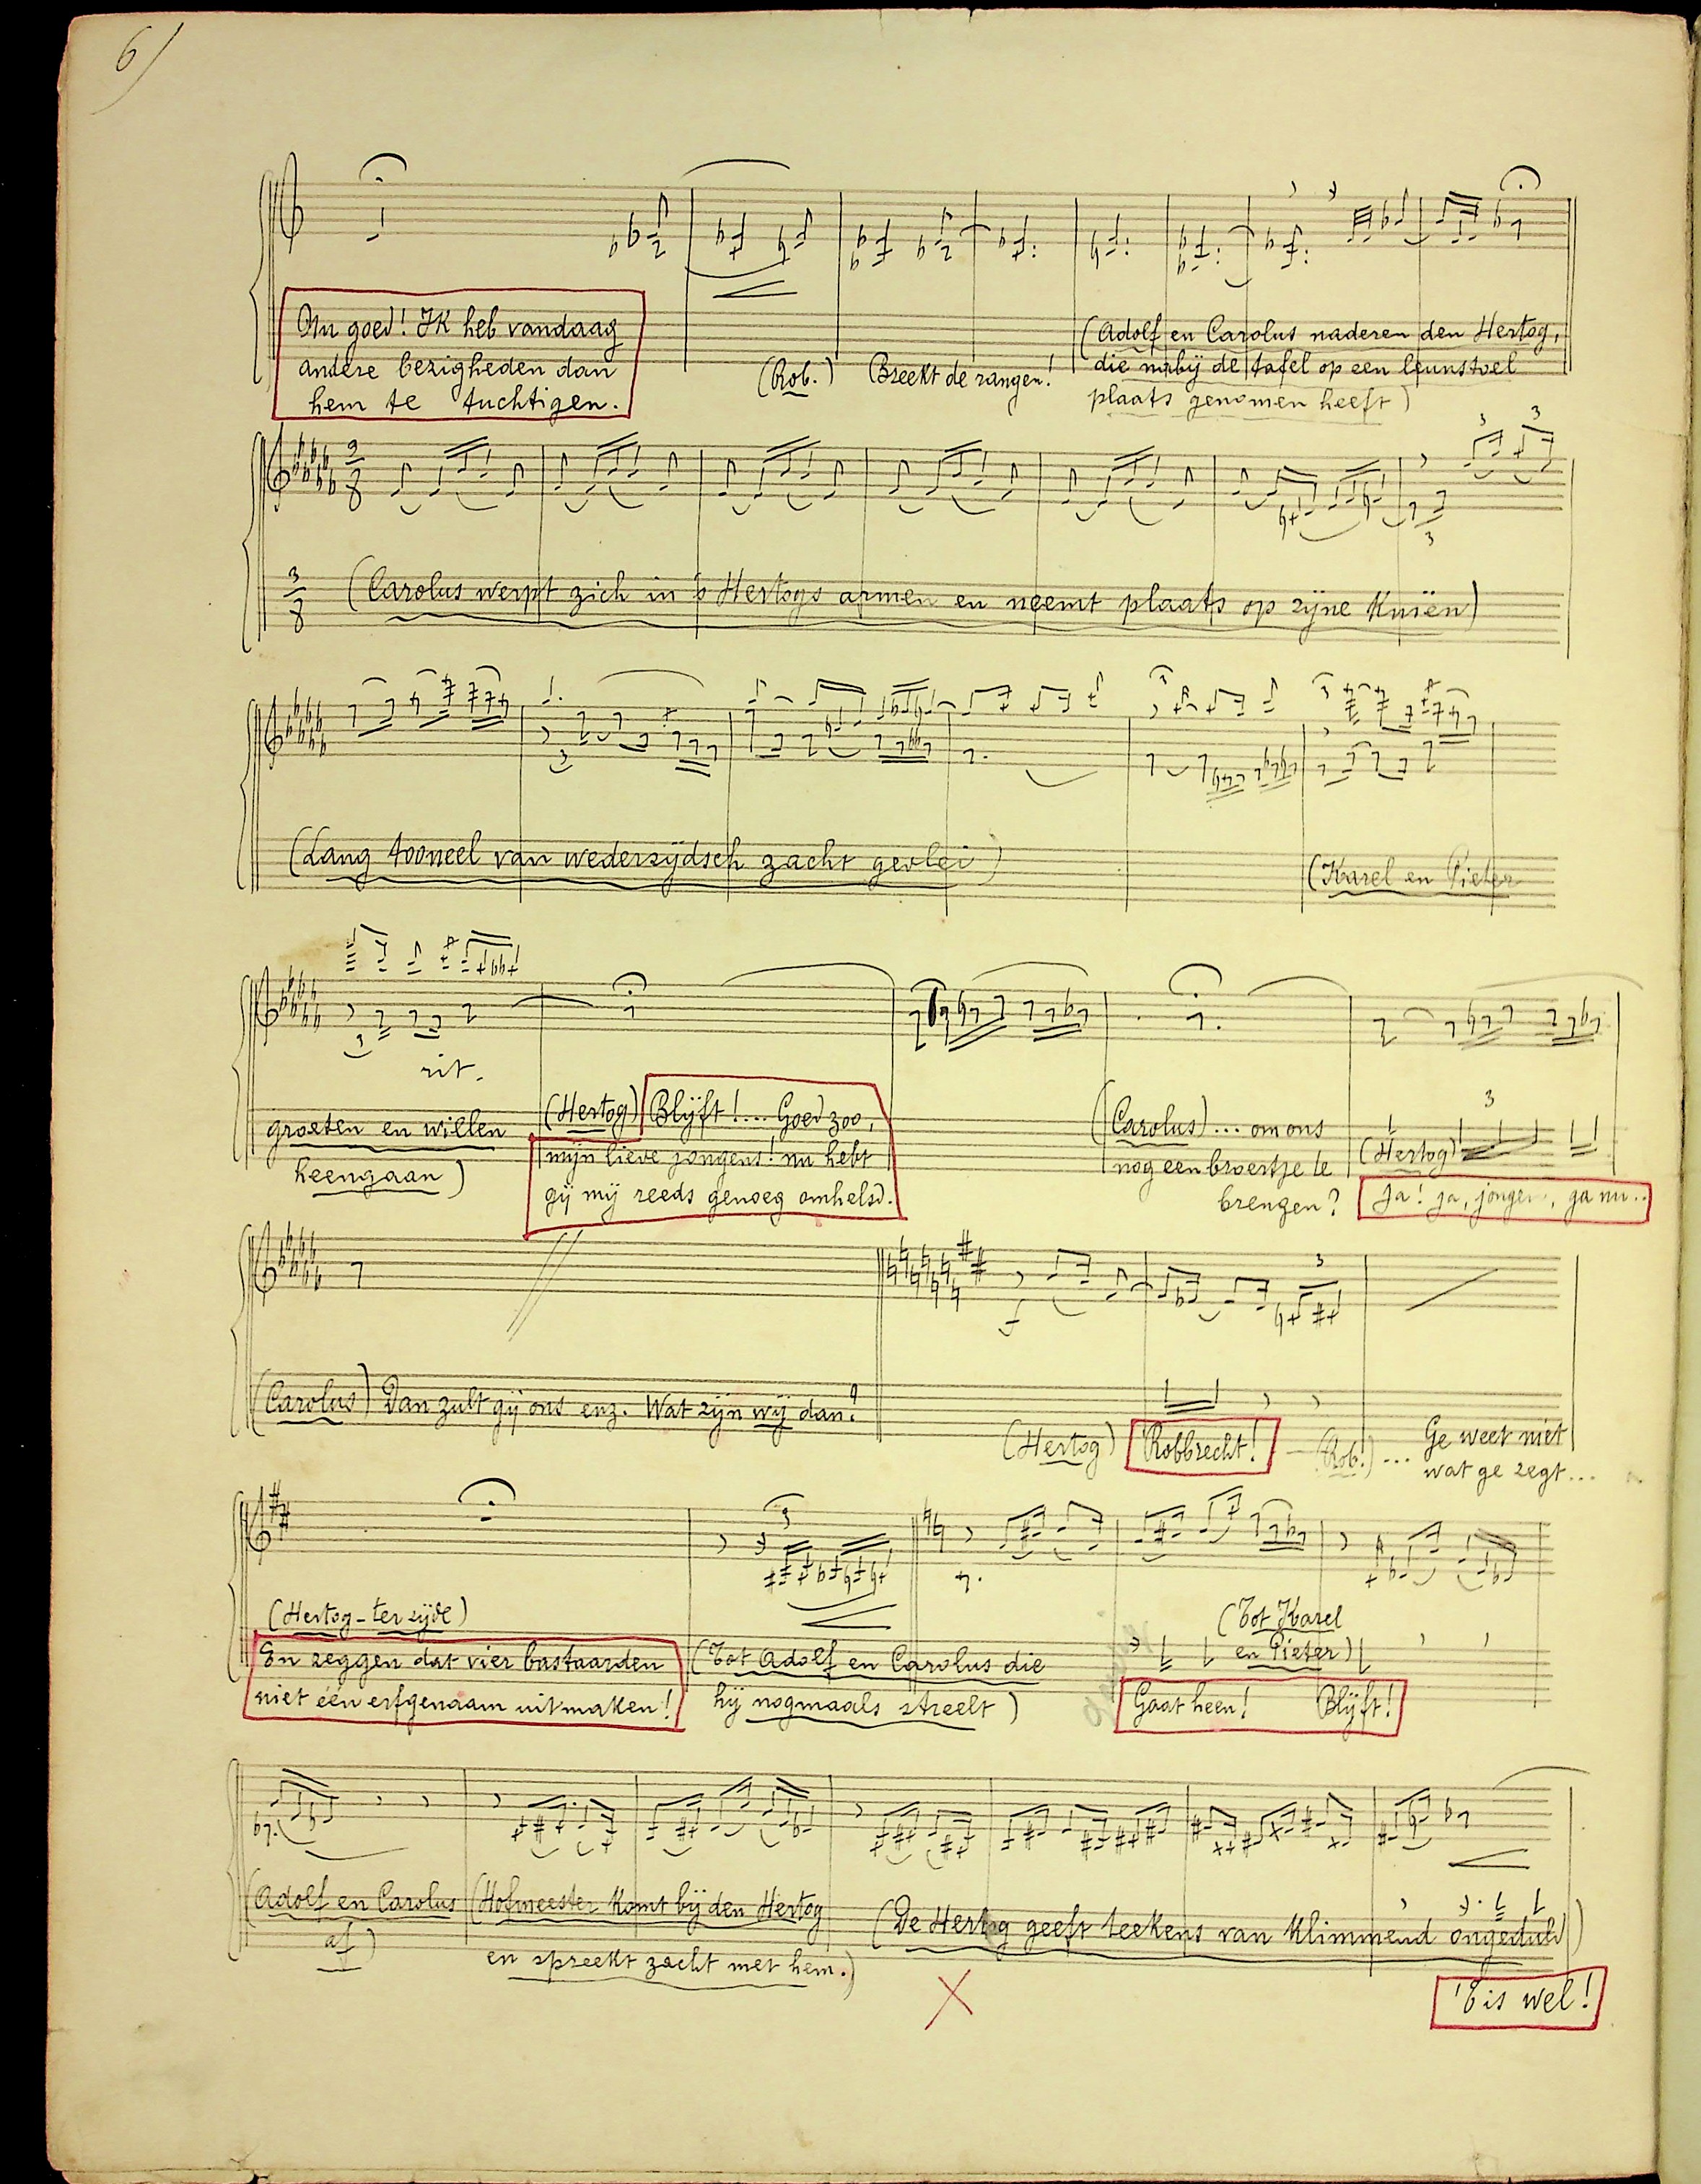 6)
Nu goed! Ik heb vandaag
andere bezigheden dan
hem te tuchtigen.
(Rob.) Breekt de rangen!
(Adolf en Carolus naderen den Hertog,
die nabij de tafel op een leunstoel
plaats genomen heeft)
9/8
3
3
3
3/8
(Carolus werpt zich in 's Hertogs armen en neemt plaats op zijne Kniën)
3
(Lang tooneel van wederzijdsch zacht gevlei)
(Karel en Pieter
3
rit.
groeten en willen
heengaan)
(Hertog) Blijft!... Goed zoo,
mijn lieve jongens! nu hebt
gij mij reeds genoeg omhelsd.
(Carolus)... om ons
nog een broertje te
brengen?
3
(Hertog)
Ja! ja, jongen, ja nu..
3
(Carolus) Dan zult gij ons enz. Wat zijn wij dan?
(Hertog) Robbrecht! - (Rob.)...
Ge weet niet
wat ge zegt...
3
(Hertog - ter zijde)
En zeggen dat vier bastaarden
niet één erfgenaam uitmaken!
(Tot Adolf en Carolus die
hij nogmaals streelt)
(Tot Karel
en Pieter)
Gaat heen! Blijft!
(Adolf en Carolus
af)
(Hofmeester Komt bij den Hertog
en spreekt zacht met hem.)
(De Hertog geeft teekens van Klimmend ongeduld)
X
't is wel!